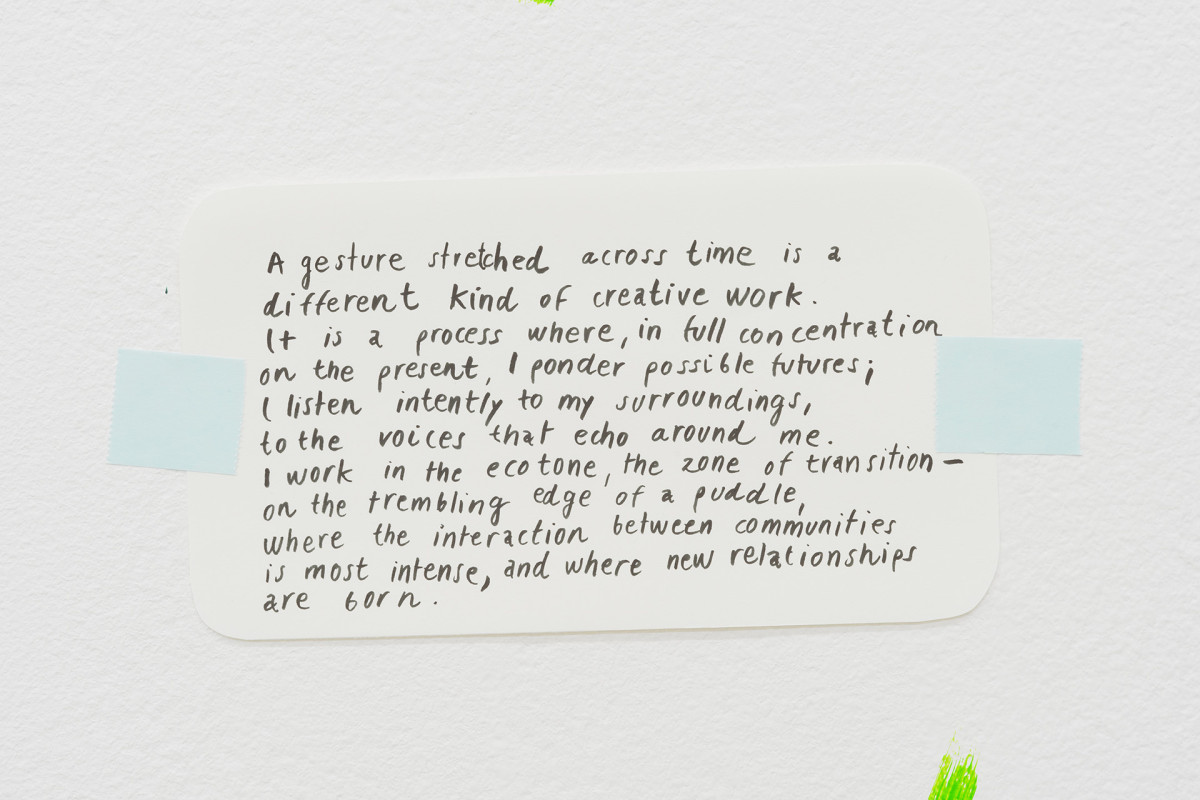 A gesture stretched across time is a
different kind of creative work.
It is a process where, in full concentration
on the present, I ponder possible futures;
I listen intently to my surroundings,
to the voices that echo around me.
I work in the ecotone, the zone of transition –
on the trembling edge of a puddle,
where the interaction between communities
is most intense, and where new relationships
are born.